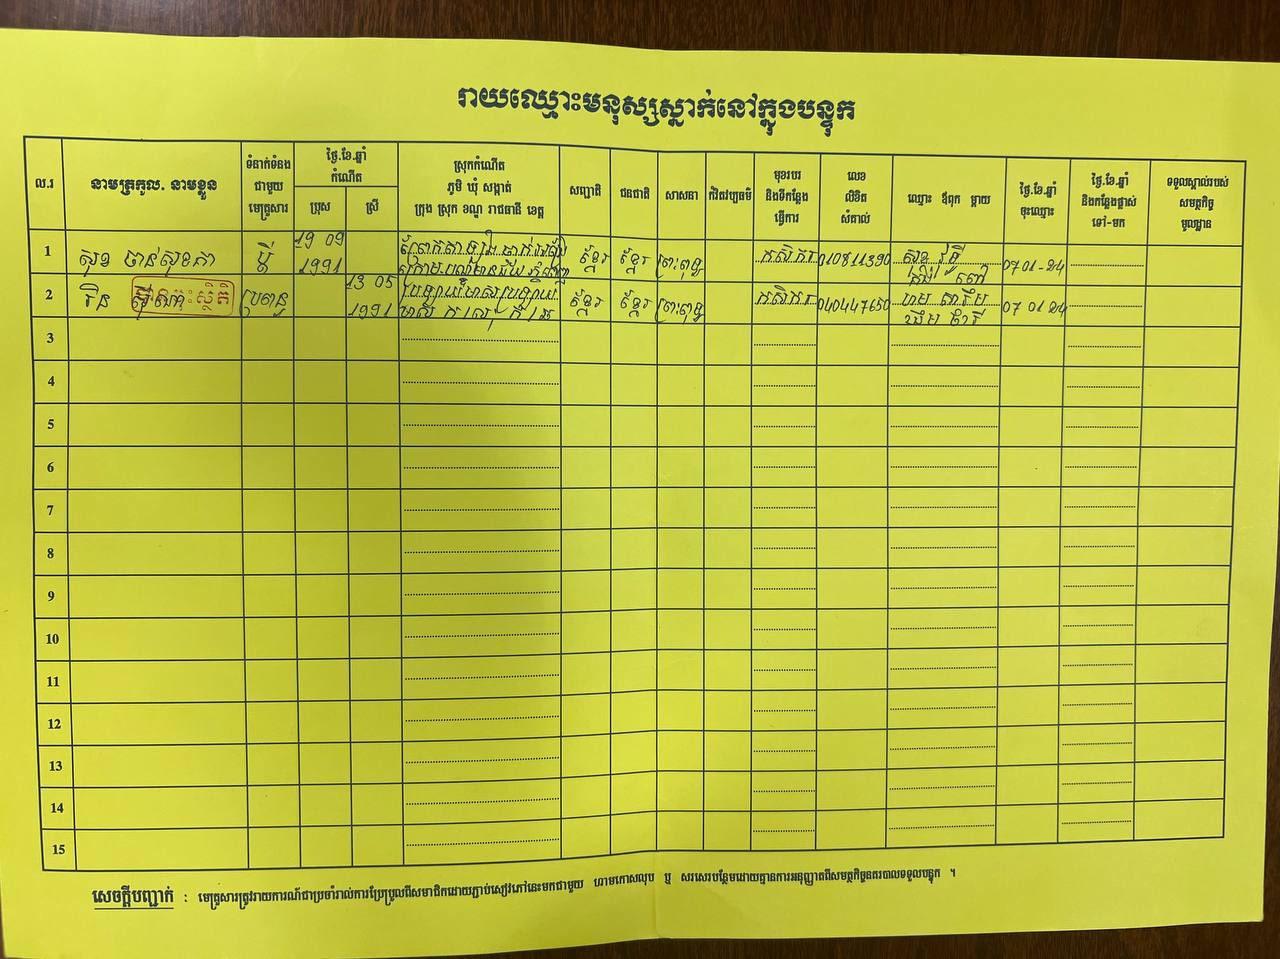 រាយឈ្មោះមនុស្សស្នាក់នៅក្នុងបន្ទុក
ល.រ
នាមត្រកូល. នាមខ្លួន
ទំនាក់ទំនង
ជាមួយ
មេគ្រួសារ
ថ្ងៃ.ខែ.ឆ្នាំ
កំណើត
ប្រុស
ស្រី
ស្រុកកំណើត
ភូមិ ឃុំ សង្កាត់
ក្រុង ស្រុក ខណ្ឌ រាជធានី ខេត្ត
សញ្ជាតិ
ជនជាតិ
សាសនា
កំរិតវប្បធម៌
មុខរបរ
និងទីកន្លែង
ធ្វើការ
លេខ
លិខិត
សំគាល់
ឈ្មោះ ឪពុក ម្ដាយ
ថ្ងៃ.ខែ.ឆ្នាំ
ចុះឈ្មោះ
ថ្ងៃ.ខែ.ឆ្នាំ
និងកន្លែងផ្លាស់
ទៅ-មក
ទទួលស្គាល់របស់
សមត្ថកិច្ច
មូលដ្ឋាន
1
សុខ ចាន់សុខភា
ប្តី
19 09
1991
ខ្មែរ
ខ្មែរ
ព្រះពុទ្ធ
កសិករ
010811390
សុខ
07 01-24
2
រិន
ប្រពន្ធ
13 05
1991
ខ្មែរ
ខ្មែរ
ព្រះពុទ្ធ
កសិករ
040447650
07 01 24
3
4
5
6
7
8
9
10
11
12
13
14
15
សេចក្ដីបញ្ជាក់ : មេគ្រួសារត្រូវរាយការណ៍ជាប្រចាំរាល់ការប្រែប្រួលពីសមាជិកដោយភ្ជាប់សៀវភៅនេះមកជាមួយ ហាមកោសលុប ឬ សរសេរបន្ថែមដោយគ្មានការអនុញ្ញាតពីសមត្ថកិច្ចនគរបាលទទួលបន្ទុក ។